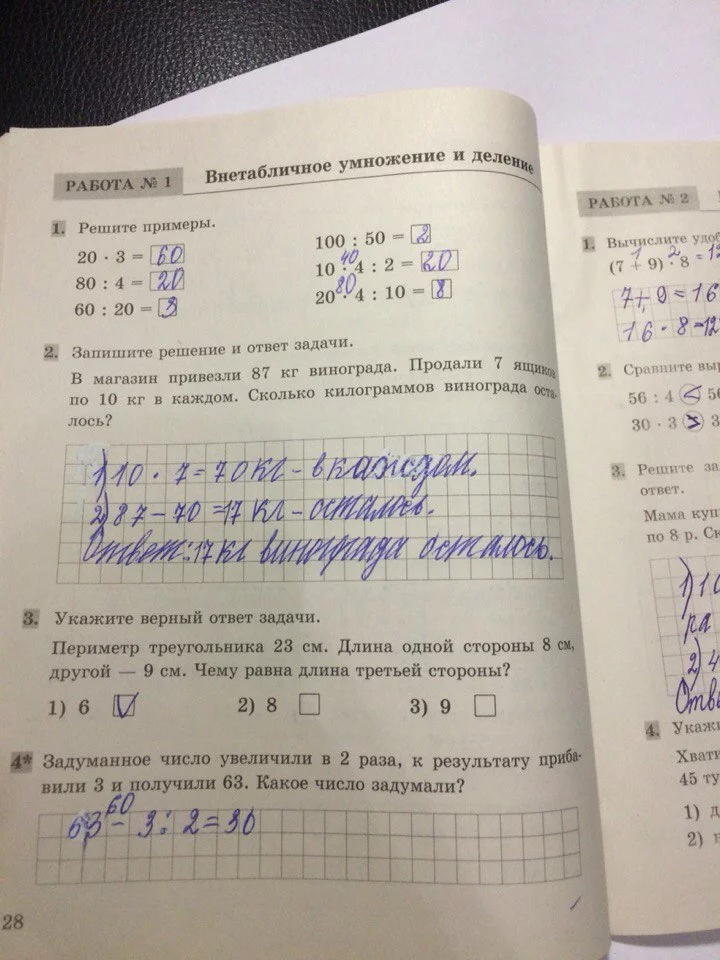 РАБОТА № 1
Внетабличное умножение и деление
1. Решите примеры.
20 · 3 = 60
80 : 4 = 20
60 : 20 = 3
100 : 50 = 2
40
10 · 4 : 2 = 20
80
20 · 4 : 10 = 8
2. Запишите решение и ответ задачи.
В магазин привезли 87 кг винограда. Продали 7 ящиков
по 10 кг в каждом. Сколько килограммов винограда оста-
лось?
1) 10 · 7 = 70 кг - в каждом.
2) 87 - 70 = 17 кг - осталось.
Ответ: 17 кг винограда осталось.
3. Укажите верный ответ задачи.
Периметр треугольника 23 см. Длина одной стороны 8 см,
другой — 9 см. Чему равна длина третьей стороны?
1) 6 V 2) 8 3) 9
4* Задуманное число увеличили в 2 раза, к результату приба-
вили 3 и получили 63. Какое число задумали?
60
63 - 3 : 2 = 30
28
РАБОТА № 2
1. Вычислите удоб
1 2
(7 + 9) · 8 = 12
7 + 9 = 16
16 · 8 = 12
2. Сравните выр
56 : 4 < 56
30 · 3 > 3
3. Решите за
ответ.
Мама куп
по 8 р. Ск
1) 10
ра
2) 4
Отв
4. Укажи
Хвати
45 ту
1) д
2)